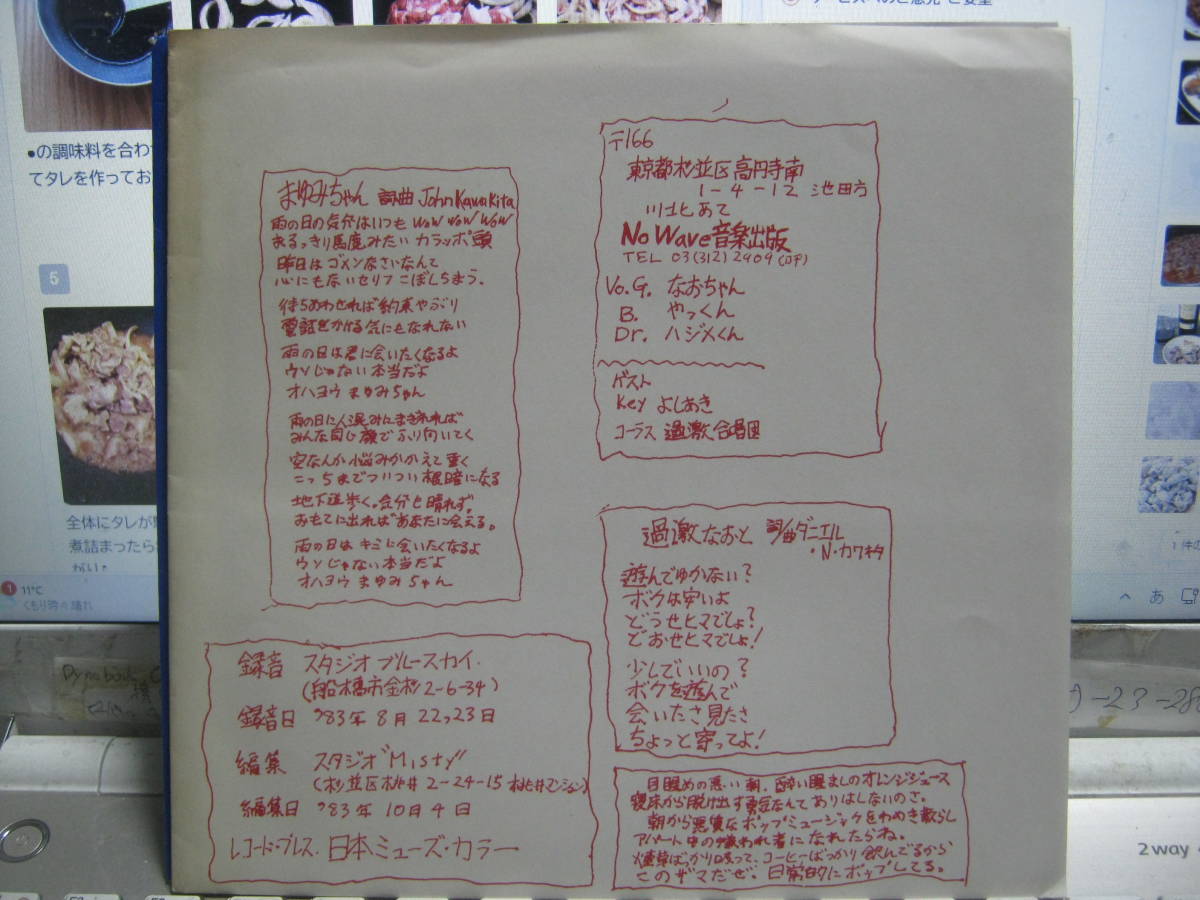 まゆみちゃん 詞曲 John Kawakita
雨の日の気分はいつも WoW WoW WoW
まるっきり馬鹿みたい カラッポ頭
昨日は ゴメンなさいなんて
心にもないセリフこぼしちまう。
待ちあわせれば約束やぶり
電話をかける気にもなれない
雨の日は君に会いたくなるよ
ウソじゃない本当だよ
オハヨウ まゆみちゃん
雨の日に人混みにまぎれれば
みんな同じ顔でふり向いてく
空なんか悩みかかえて重く
こっちまでついつい根暗になる
地下道歩く。気分も晴れず。
おもてに出ればあなたに会える。
雨の日は キミに会いたくなるよ
ウソじゃない本当だよ
オハヨウ まゆみちゃん
録音 スタジオブルースカイ.
(船橋市金杉2-6-34)
録音日 '83年8月22,23日
編集 スタジオ"Misty"
(杉並区桃井2-24-15 桃井マンション)
編集日 '83年10月4日
レコード・プレス. 日本ミューズ・カラー
〒166
東京都杉並区高円寺南
1-4-12 池田方
川北あて
No Wave音楽出版
TEL 03(312)2909(呼)
Vo.G. なおちゃん
B. やっくん
Dr. ハジメくん
ゲスト
Key よしあき
コーラス 過激合唱団
過激なおと 詞/曲ダニエル
・N・カワキタ
遊んでゆかない?
ボクは安いよ
どうせヒマでしょ?
どおせヒマでしょ!
少しでいいの?
ボクを遊んで
会いたさ見たさ
ちょっと寄ってよ!
目醒めの悪い朝. 酔い醒ましのオレンジジュース
寝床から脱け出す勇気なんてありはしないのさ。
朝から悪質なポップミュージックをわめき散らし
アパート中の嫌われ者になれたらね。
煙草ばっかり吸って、コーヒーばっかり飲んでるから
このザマだぜ. 日常的にポップしてる。
の調味料を合わ
てタレを作ってお
5
全体にタレが
煮詰まったら
11℃
くもり時々晴れ
あ
2way